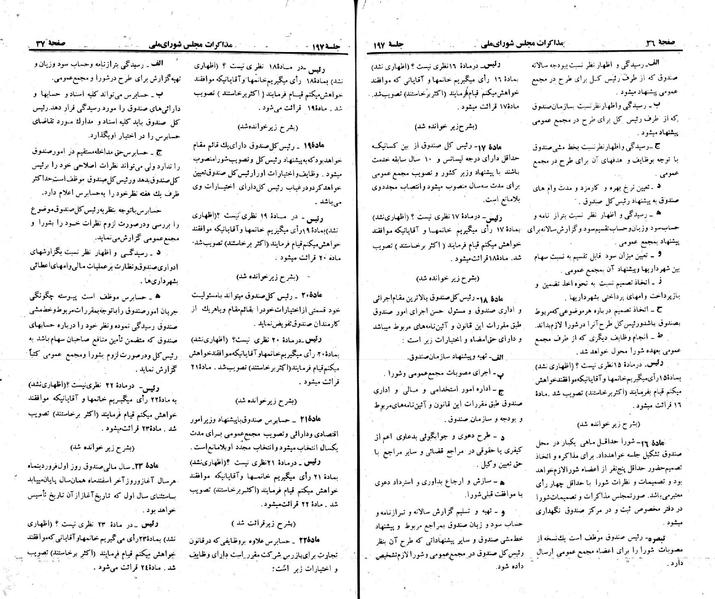 صفحهٔ ۳۶
مذاکرات مجلس شورای‌ملی
جلسهٔ ۱۹۷
الف ـ رسیدگی و اظهار نظر نسبت ببودجه سالانه
صندوق که از طرف رئیس کـل برای طرح در مجمع
عمومی پیشنهاد میشود .
ب ـ رسیدگی و اظهار نظر نسبت بسازمان صندوق
که از طرف رئیس کل برای طرح در مجمع عمومی
پیشنهاد میشود .
ج ـ رسیدگی و اظهار نظر نسبت بخط مشی صندوق
با توجه بوظایف و هدفهای آن برای طرح در مجمع
عمومی
د ـ تعیین نرخ بهره و کارمزد و مدت وام های
صندوق به پیشنهاد رئیس کل صندوق .
ه ـ رسیدگی و اظهار نظر نسبت بتراز نامه و
حساب سود وزیان و حساب تقسیم سود و گزارش سالانه برای
پیشنهاد بمجمع عمومی .
و ـ تعیین میزان سود قابل تقسیم به نسبت سهام
بین شهرداریها و پیشنهاد آن بمجمع عمومی .
ز ـ اتخاذ تصمیم نسبت به نحوه اخذ تضمین و
بازپرداخت وامهای پرداختی بشهرداریها .
ح ـ اتخاذ تصمیم درباره هرموضوعی که مربوط
بصندوق باشد و رئیس کل طرح آنرا در شورا لازم بداند.
ط ـ انجام وظایف دیگری که از طرف مجمع
عمومی بعهده شورا محول خواهد شد.
رئیس ـ در مادهٔ ۱۵ نظری نیست ؟ (اظهاری نشد)
بمادهٔ ۱۵ رأی میگیریم خانمها و آقایانیکه موافقند خواهش
میکنم قیام فرمایند (اکثر برخاستند) تصویب شد . مادهٔ
۱۶ قرائت میشود .
(بشرح زیر خوانده شد)
مادهٔ ۱۶ ـ شورا حداقل ماهی یکبار در محل
صندوق تشکیل جلسه خواهد داد. برای مذاکره و اتخاذ
تصمیم حضور حداقل پنج نفر از اعضاء شورا لازم خواهد
بود و تصمیمات و نظرات شورا با حداقل چهار رأی
معتبر می باشد. صورتمجلس مذاکرات و تصمیمات شورا
در دفتر مخصوص ثبت و در مرکز صندوق نگهداری
میشود .
تبصره ـ رئیس کل صندوق موظف است یک نسخه از
مصوبات شورا را برای اعضاء مجمع عمومی ارسال
دارد .
رئیس ـ در مادهٔ ۱۶ نظری نیست ؟ (اظهاری نشد)
بمادهٔ ۱۶ رأی میگیریم خانمها و آقایانی که موافقند
خواهش میکنم قیام فرمایند (اکثر برخاستند) تصویب شد.
مادهٔ ۱۷ قرائت میشود .
(بشرح زیر خوانده شد)
مادهٔ ۱۷ ـ رئیس کل صندوق از بین کسانیکه
حداقل دارای درجه لیسانس و ۱۰ سال سابقه خدمت
باشند به پیشنهاد وزیر کشور و تصویب مجمع عمومی
برای مدت سه سال منصوب میشود و انتصاب مجدد وی
بلامانع است.
رئیس ـ در مادهٔ ۱۷ نظری نیست ؟ (اظهاری نشد)
بمادهٔ ۱۷ رأی میگیریم خانمها و آقایانیکه موافقند
خواهش میکنم قیام فرمایند ( اکثر برخاستند ) تصویب
شد. مادهٔ ۱۸ قرائت میشود.
(بشرح زیر خوانده شد)
مادهٔ ۱۸ ـ رئیس کل صندوق بالاترین مقام اجرائی
و اداری صندوق و مسئول حسن اجرای امور صندوق
طبق مقررات این قانون و آئین‌نامه‌های مربوط میباشد
و دارای حق امضاء و اختیارات زیر است :
الف ـ تهیه و پیشنهاد سازمان صندوق.
ب ـ اجرای مصوبات مجمع عمومی و شورا .
ج ـ اداره امور استخدامی و مالی و اداری
صندوق طبق مقررات این قانون و آئین‌نامه‌های مربوط
و بودجه و سازمان صندوق .
د ـ طرح دعوی و جوابگوئی بدعاوی اعم از
کیفری یا حقوقی در مراجع قضائی و سایر مراجع با
حق تعیین وکیل .
ه ـ سازش و ارجاع بداوری و استرداد دعوی
با موافقت قبلی شورا .
و ـ تهیه و تسلیم گزارش سالانه و ترازنامه و
حساب سود و زیان صندوق بمراجع مربوط و پیشنهاد
خط مشی صندوق و سایر پیشنهاداتی که طرح آن بنظر
رئیس کل صندوق در مجمع عمومی و شورا لازم تشخیص
داده شود.
جلسهٔ ۱۹۷
مذاکرات مجلس شورای‌ملی
صفحهٔ ۳۷
رئیس ـ در مادهٔ ۱۸ نظری نیست ؟ (اظهاری
نشد) بمادهٔ ۱۸ رأی میگیریم خانمها و آقایانیکه موافقند
خواهش میکنم قیام فرمایند ( اکثر برخاستند ) تصویب
شد . مادهٔ ۱۹ قرائت می‌شود .
(بشرح زیر خوانده شد)
مادهٔ ۱۹ ـ رئیس کل صندوق دارای یک قائم مقام
خواهد بود که به پیشنهاد رئیس کل و تصویب شورا منصوب
میشود . وظایف و اختیارات او را رئیس کل صندوق تعیین
خواهد کرد و در غیاب رئیس کل دارای اختیارات وی
می‌باشد .
رئیس ـ در مادهٔ ۱۹ نظری نیست ؟ (اظهاری
نشد) بمادهٔ ۱۹ رأی میگیریم خانمها و آقایانیکه موافقند
خواهش میکنم قیام فرمایند ( اکثر برخاستند ) تصویب شد.
مادهٔ ۲۰ قرائت میشود.
(بشرح زیر خوانده شد)
مادهٔ ۲۰ ـ رئیس کل صندوق میتواند بامسئولیت
خود قسمتی از اختیارات خود را بقائم مقام و یا هر یک از
کارمندان صندوق تفویض نماید.
رئیس ـ در مادهٔ ۲۰ نظری نیست ؟ (اظهاری نشد)
بمادهٔ ۲۰ رأی میگیریم خانمها و آقایانیکه موافقند خواهش
میکنم قیام فرمایند (اکثر برخاستند) تصویب شد . مادهٔ ۲۱
قرائت میشود .
(بشرح زیر خوانده شد)
مادهٔ ۲۱ ـ حسابرس صندوق با پیشنهاد وزیر امور
اقتصادی و دارائی و تصویب مجمع عمومی برای مدت
یکسال انتخاب میشود و انتخاب مجدد او بلامانع است .
رئیس ـ در مادهٔ ۲۱ نظری نیست ؟ (اظهاری نشد)
بمادهٔ ۲۱ رأی میگیریم خانمها و آقایانیکه موافقند
خواهش میکنم قیام فرمایند (اکثر برخاستند) تصویب
شد . مادهٔ ۲۲ قرائت میشود .
(بشرح زیر قرائت شد )
مادهٔ ۲۲ ـ حسابرس علاوه بر وظایفی که در قانون
تجارت برای بازرس شرکت مقرر است دارای وظایف
و اختیارات زیر است:
الف ـ رسیدگی بترازنامه و حساب سود و زیان و
تهیه گزارش برای طرح در شورا و مجمع عمومی.
ب ـ حسابرس می‌تواند کلیه اسناد و حسابها و
دارائی‌های صندوق را مورد رسیدگی قرار دهد. رئیس
کل صندوق باید کلیه اسناد و مدارک مورد تقاضای
حسابرس را در اختیار او بگذارد.
ج ـ حسابرس حق مداخله مستقیم در امور صندوق
را ندارد ولی می‌تواند نظرات اصلاحی خود را برئیس
کل صندوق بدهد و رئیس کل صندوق موظف است حداکثر
ظرف یک هفته نظر خود را به حسابرس اعلام دارد.
حسابرس با توجه بنظریه رئیس کل صندوق موضوع
را بررسی و در صورت لزوم نظرات خود را بشورا و
مجمع عمومی گزارش می‌نماید.
د ـ رسیدگی و اظهار نظر نسبت بگزارشهای
ادواری صندوق و نظارت بر عملیات مالی وامهای اعطائی
بشهرداریها .
ه ـ حسابرس موظف است پیوسته چگونگی
جریان امور صندوق را با توجه بمقررات مربوط و خط مشی
صندوق رسیدگی نموده و نظر خود را درباره حسابهای
صندوق که متضمن تأمین منافع صاحبان سهام باشد به
رئیس کل و در صورت لزوم بشورا و مجمع عمومی کتباً
گزارش نماید .
رئیس ـ در مادهٔ ۲۲ نظری نیست ؟ (اظهاری نشد)
به مادهٔ ۲۲ رأی میگیریم خانمها و آقایانیکه موافقند خواهش
میکنم قیام فرمایند (اکثر برخاستند) تصویب شد .
مادهٔ ۲۳ قرائت میشود.
(بشرح زیر خوانده شد )
مادهٔ ۲۳ ـ سال مالی صندوق روز اول فروردینماه
هر سال آغاز و روز آخر اسفندماه همان سال پایان مییابد
باستثنای سال اول که تاریخ آغاز از آن تاریخ تأسیس
خواهد بود .
رئیس ـ در مادهٔ ۲۳ نظری نیست ؟ (اظهاری
نشد) بمادهٔ ۲۳ رأی می گیریم خانمها و آقایانی که موافقند
خواهش میکنم قیام فرمایند (اکثر برخاستند) تصویب
شد . مادهٔ ۲۴ قرائت می‌شود .